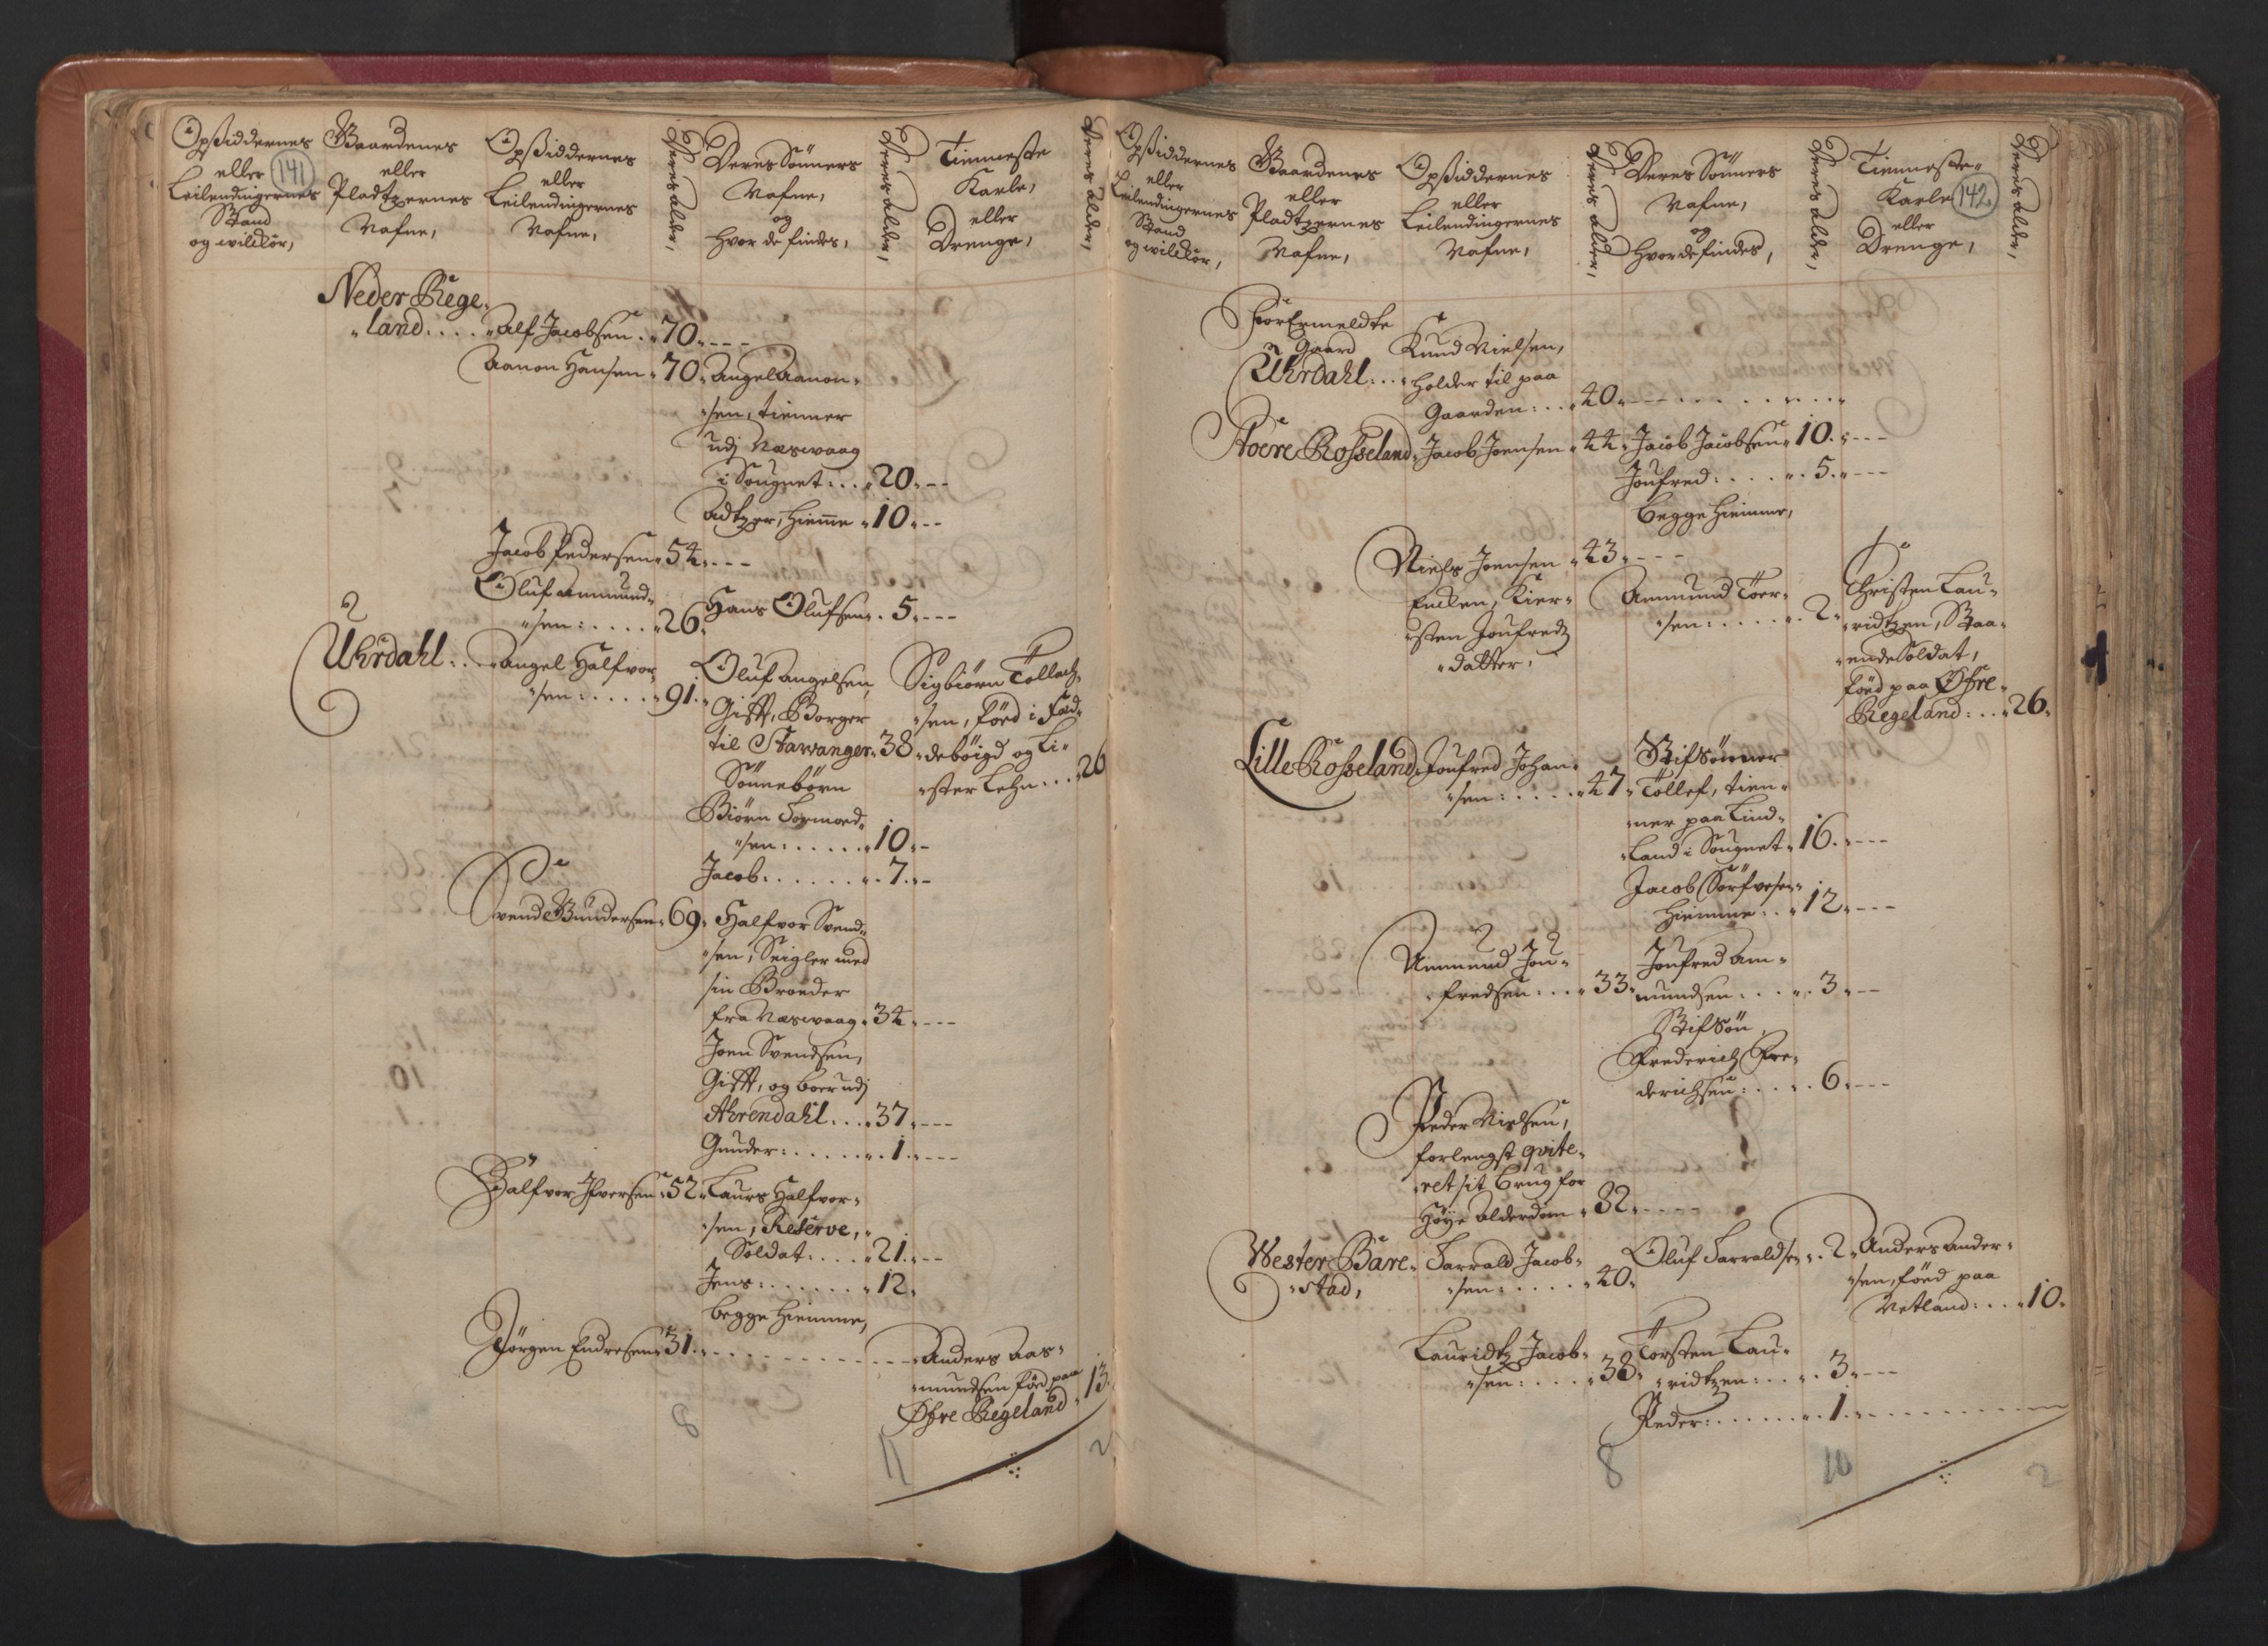 141
Opsiddernes
eller
Leilendingernes
Stand
og wilckor,
Gaardenes
eller
Pladtzernes
Nafne,
Opsiddernes
eller
Leilendingernes
Nafne,
Deres alder,
Deres Sönners
Nafne,
og
hvor de findes,
Deres alder,
Tienneste
Karle,
eller
Drenge,
Deres alder,
Neder Rege-
land.... Alf Jacobsen. 70.
Aanon Hansen. 70. Angel Aanon-
sen, tienner
udj Næswaag
i Sougnet:... 20.
Adtzer, hieme 10.
Jacob Pedersen 54.
Oluf Ammund-
sen:.... 26. Hans Olufsen. 5.
Uhrdahl... Angel Halfvor-
sen:.... 91.
Oluf Angelsen,
Gifft, Borger
til Stawanger. 38
Sönnebörn
Biörn Tormoed-
sen:..... 10.
Jacob:...... 7.
Sigbiörn Tollach-
sen, föed i Fed-
debögd og Li-
ster Lehn... 26
Svend Gundersen. 69. Halfvor Svend-
sen, Seigler med
sin Broeder
fra Næswaag. 34.
Joen Svendsen,
Gifft, og boer udj
Ahrendahl.... 37.
Gunder:..... 1.
Halfvor Ifversen. 52. Laurs Halfvor-
sen, Reserve,
Soldat:.... 21.
Jens:...... 12.
begge hiemme,
Jörgen Endresen 31.
Anders Aas-
mundsen föed paa
Öfre Regeland. 13.
8
11
2
142
Opsiddernes
eller
Leilendingernes
Stand
og wilckor,
Gaardenes
eller
Pladtzernes
Nafne,
Opsiddernes
eller
Leilendingernes
Nafne,
Deres alder,
Deres Sönners
Nafne,
og
hvor de findes,
Deres alder,
Tienneste-
Karle
eller
Drenge,
Deres alder,
Forermeldte
Gaard
Uhrdahl...
Knud Nielsen,
holder til paa
Gaarden:... 40.
Stoere Rosseland. Jacob Joensen. 44. Jacob Jacobsen. 10.
Joufred:.... 5.
begge hiemme,
Niels Joensen. 43.
Encken, Kier-
sten Joufredz
datter,
Ammund Toer-
sen:..... 2.
Christen Lau-
ridtzen, Staa-
ende Soldat,
föed paa Öfre-
Regeland:... 26.
Lille Rosseland. Joufred Johan-
sen:.... 47.
Stifsönner
Tollef, tien-
ner paa Lind-
land i Sougnet. 16.
Jacob Sörfvesen
hiemme:.. 12.
Ammund Jou-
fredsen:... 33.
Joufred Am-
mundsen:... 3.
Stifsön,
Frederich Fre-
derichsen:.... 6.
Peder Nielsen,
forlengst qvite-
ret sit brug for
höye alderdom. 82.
Wester Bare-
stad,
Tarrald Jacob-
sen:.... 40.
Oluf Tarraldsen. 2.
Anders Ander-
sen, föed paa
Netland:... 10.
Lauridtz Jacob-
sen:... 38.
Torsten Lau-
ridtzen:... 3.
Peder:...... 1.
8
10
2